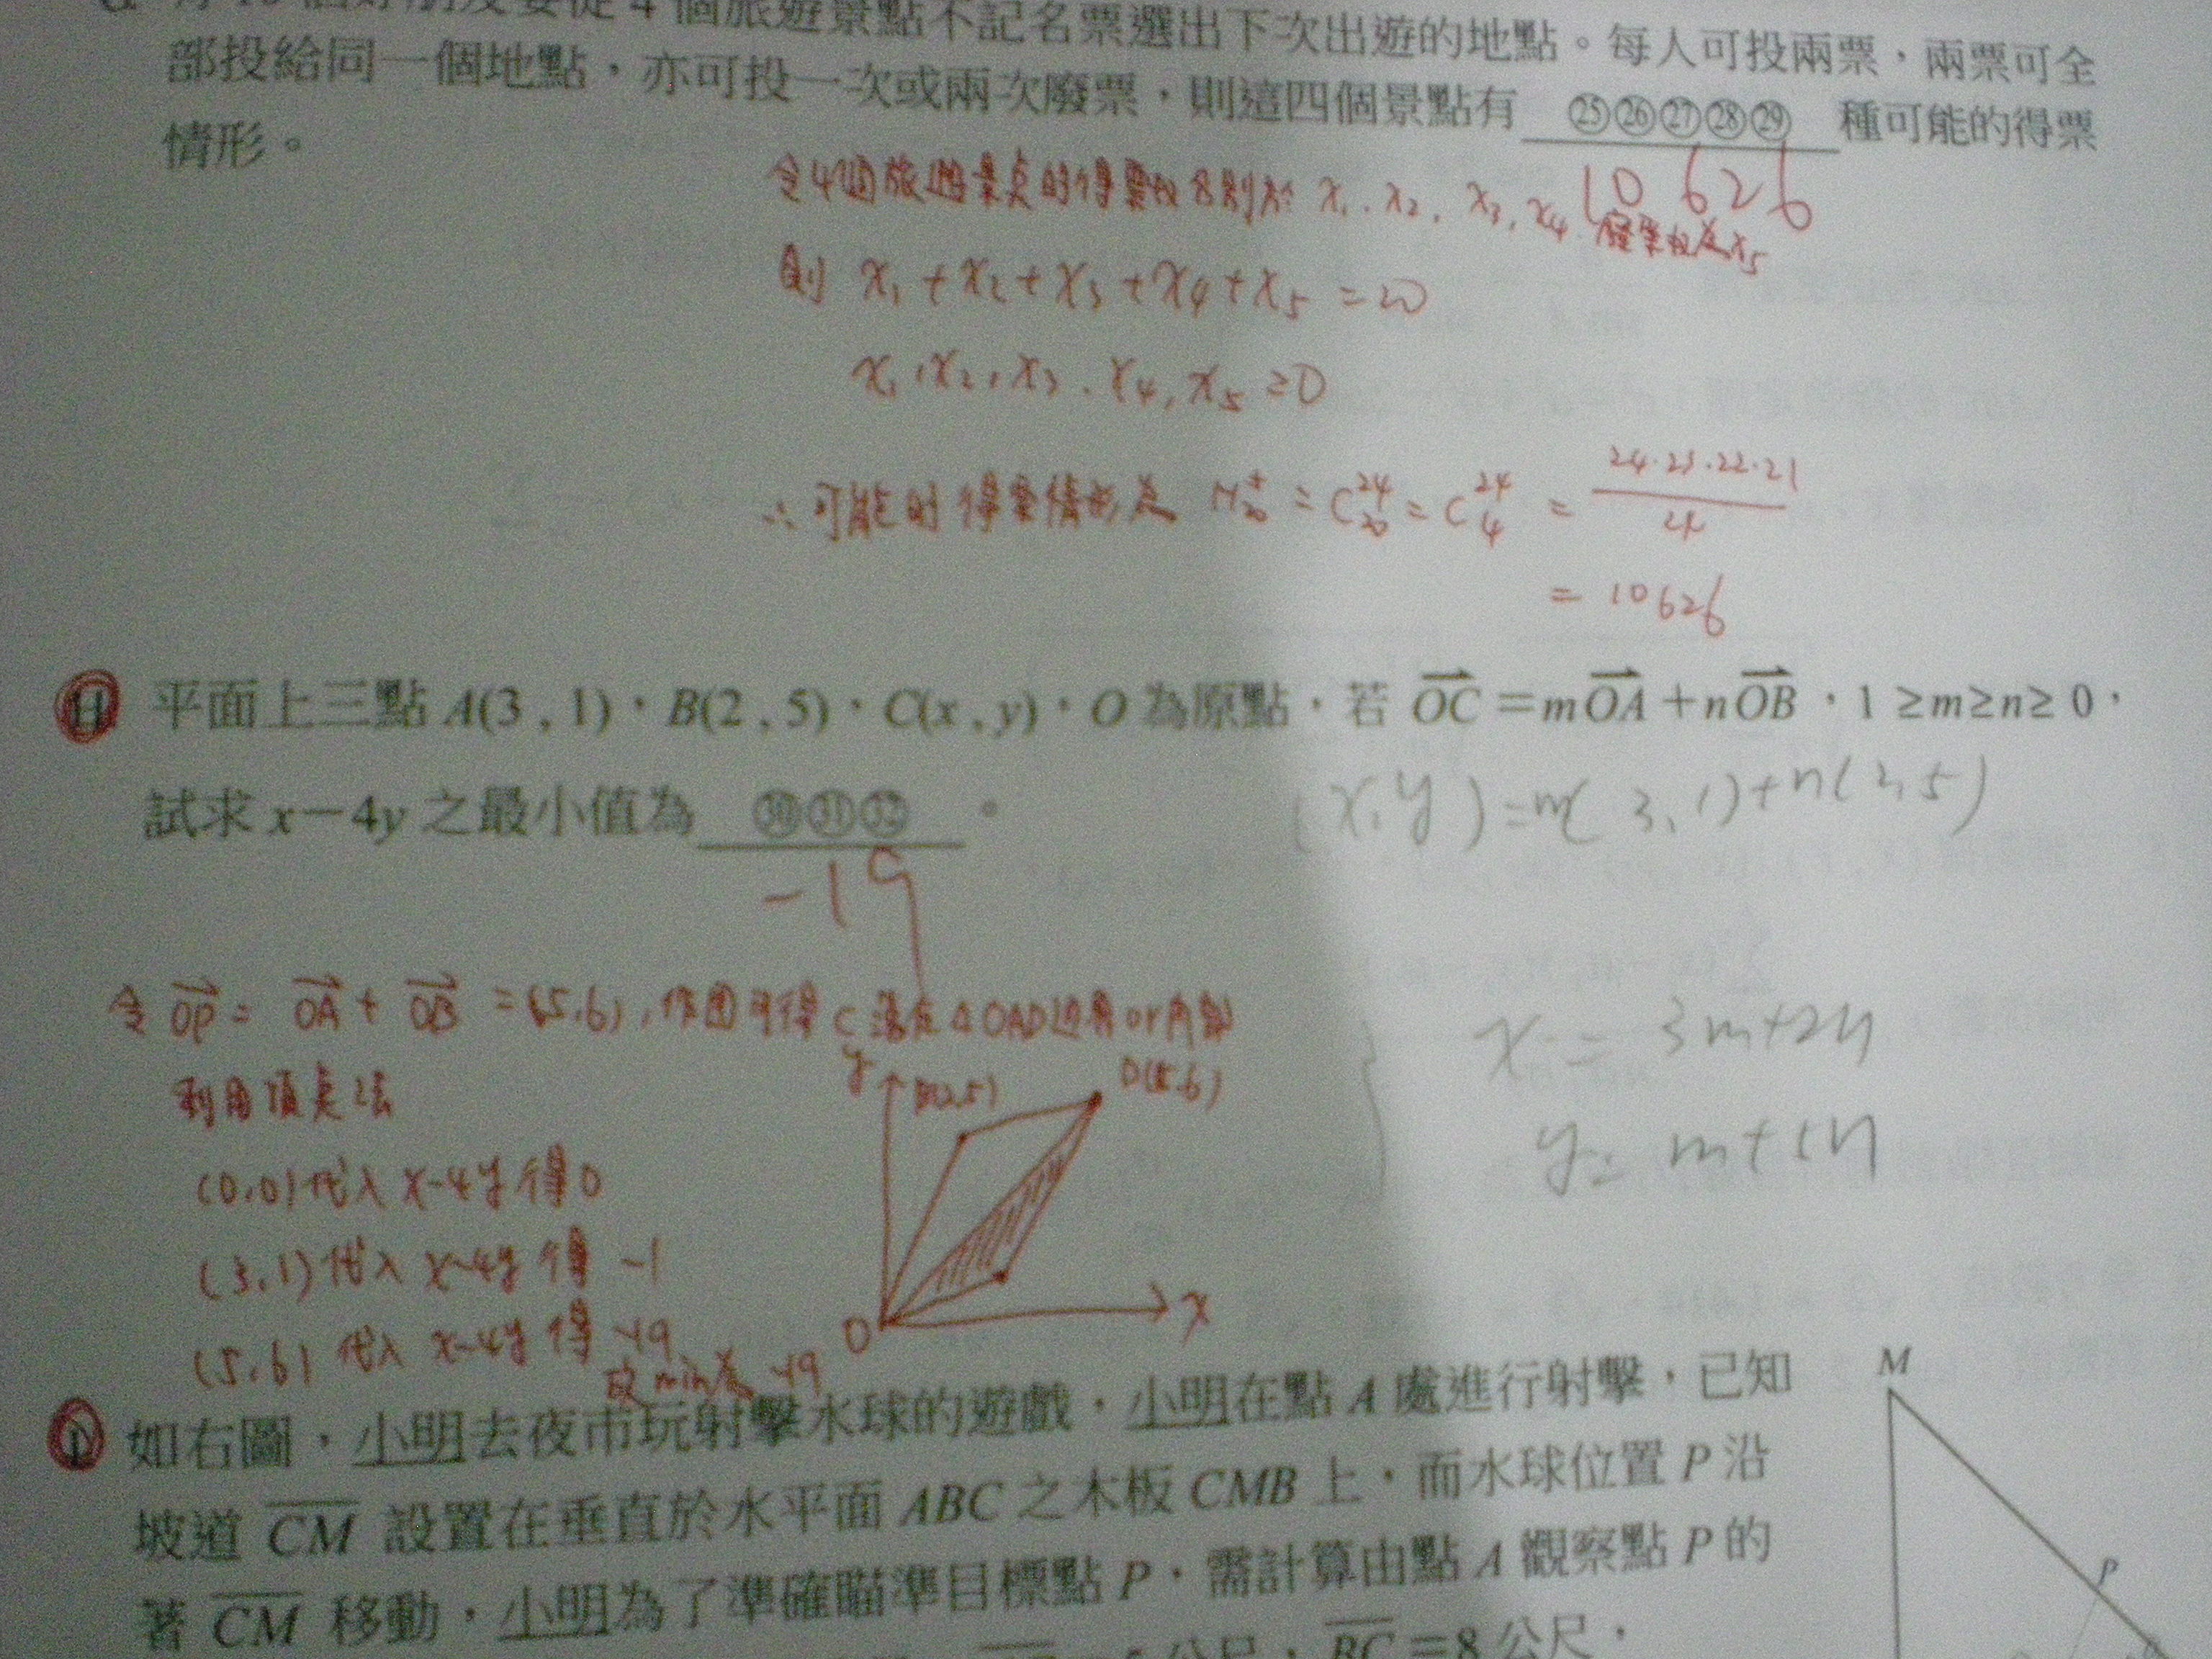 個旅遊景點不記名票選出下次出遊的地點。每人可投兩票，兩票可全
部投給同一個地點，亦可投一次或兩次廢票，則這四個景點有 ㉕㉖㉗㉘㉙ 種可能的得票
情形。
10 626
令4個旅遊景点的得票數分別為 x₁, x₂, x₃, x₄ 廢票數為x₅
則 x₁+x₂+x₃+x₄+x₅=20
x₁,x₂,x₃,x₄,x₅≥0
∴可能的得票情形為 = C²⁴₂₀ = C²⁴₄ = 24·23·22·21 / 4
= 10626
H 平面上三點 A(3,1)，B(2,5)，C(x,y)，O 為原點，若 OC=mOA+nOB，1≥m≥n≥0，
試求 x−4y 之最小值為 ㉚㉛㉜ 。
(x,y)=m(3,1)+n(2,5)
-19
令 OP = OA + OB =(5,6), 作圖可得 C 落在△OAD邊界or內部
利用頂点法
(0,0)代入 x-4y 得0
(3,1)代入 x-4y 得 -1
(5,6)代入 x-4y 得 -19
故min為 -19
y B(2,5) D(5,6)
O x
x = 3m+2n
y = m+5n
I 如右圖，小明去夜市玩射擊水球的遊戲，小明在點 A 處進行射擊，已知
坡道 CM 設置在垂直於水平面 ABC 之木板 CMB 上，而水球位置 P 沿
著 CM 移動，小明為了準確瞄準目標點 P，需計算由點 A 觀察點 P 的
公尺，BC=8 公尺，
M
P